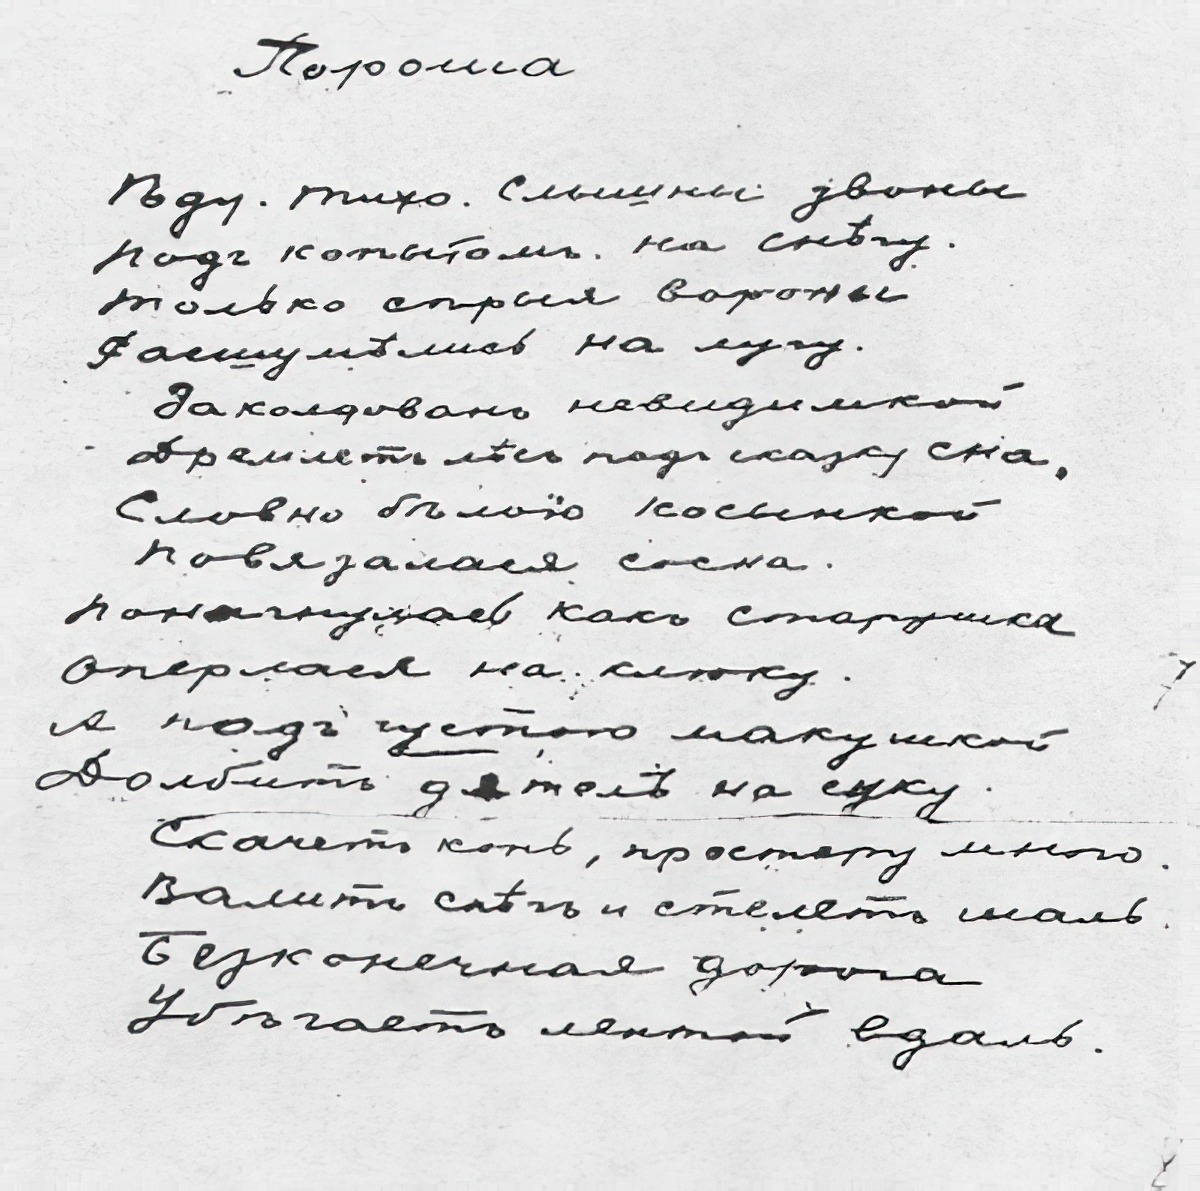 Пороша
Ѣду. Тихо. Слышны звоны
Подъ копытомъ. на снѣгу.
Только сѣрыя вороны
Расшумѣлись на лугу.
Заколдованъ невидимкой
Дремлетъ лѣсъ подъ сказку сна.
Словно бѣлою косынкой
Повязалася сосна.
Понагнулась какъ старушка
Оперлася на клюку.
А подъ густою макушкой
Долбитъ дятелъ на суку.
Скачетъ конь, простору много.
Валитъ снѣгъ и стелетъ шаль.
Безконечная дорога
Убѣгаетъ лентой вдаль.